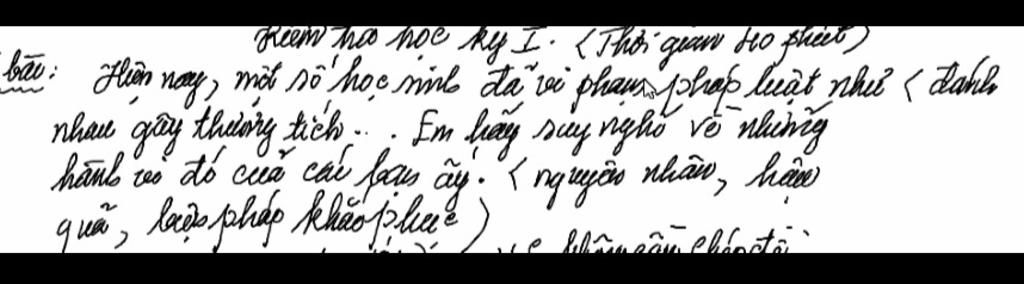 Kiểm tra học kỳ I. (Thời gian 90 phút)
bài: Hiện nay, một số học sinh đã vi phạm pháp luật như (đánh
nhau gây thương tích... Em hãy suy nghĩ về những
hành vi đó của các bạn ấy. (nguyên nhân, hậu
quả, biện pháp khắc phục)
không cần chép đề